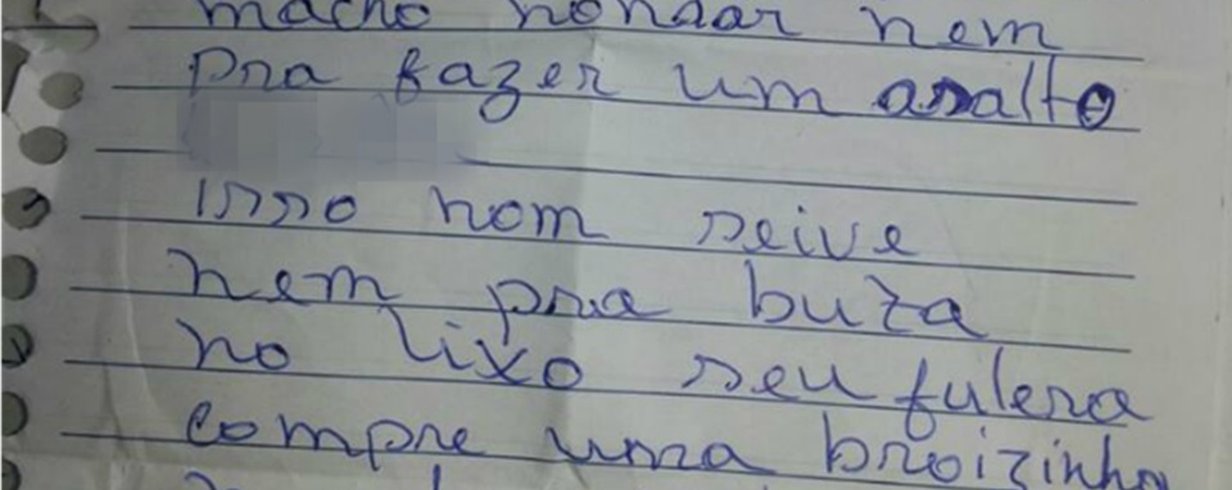 macho nondar nem
pra fazer um asalto
isso nom seive
nem pra buta
no lixo seu fulera
compre uma broizinha